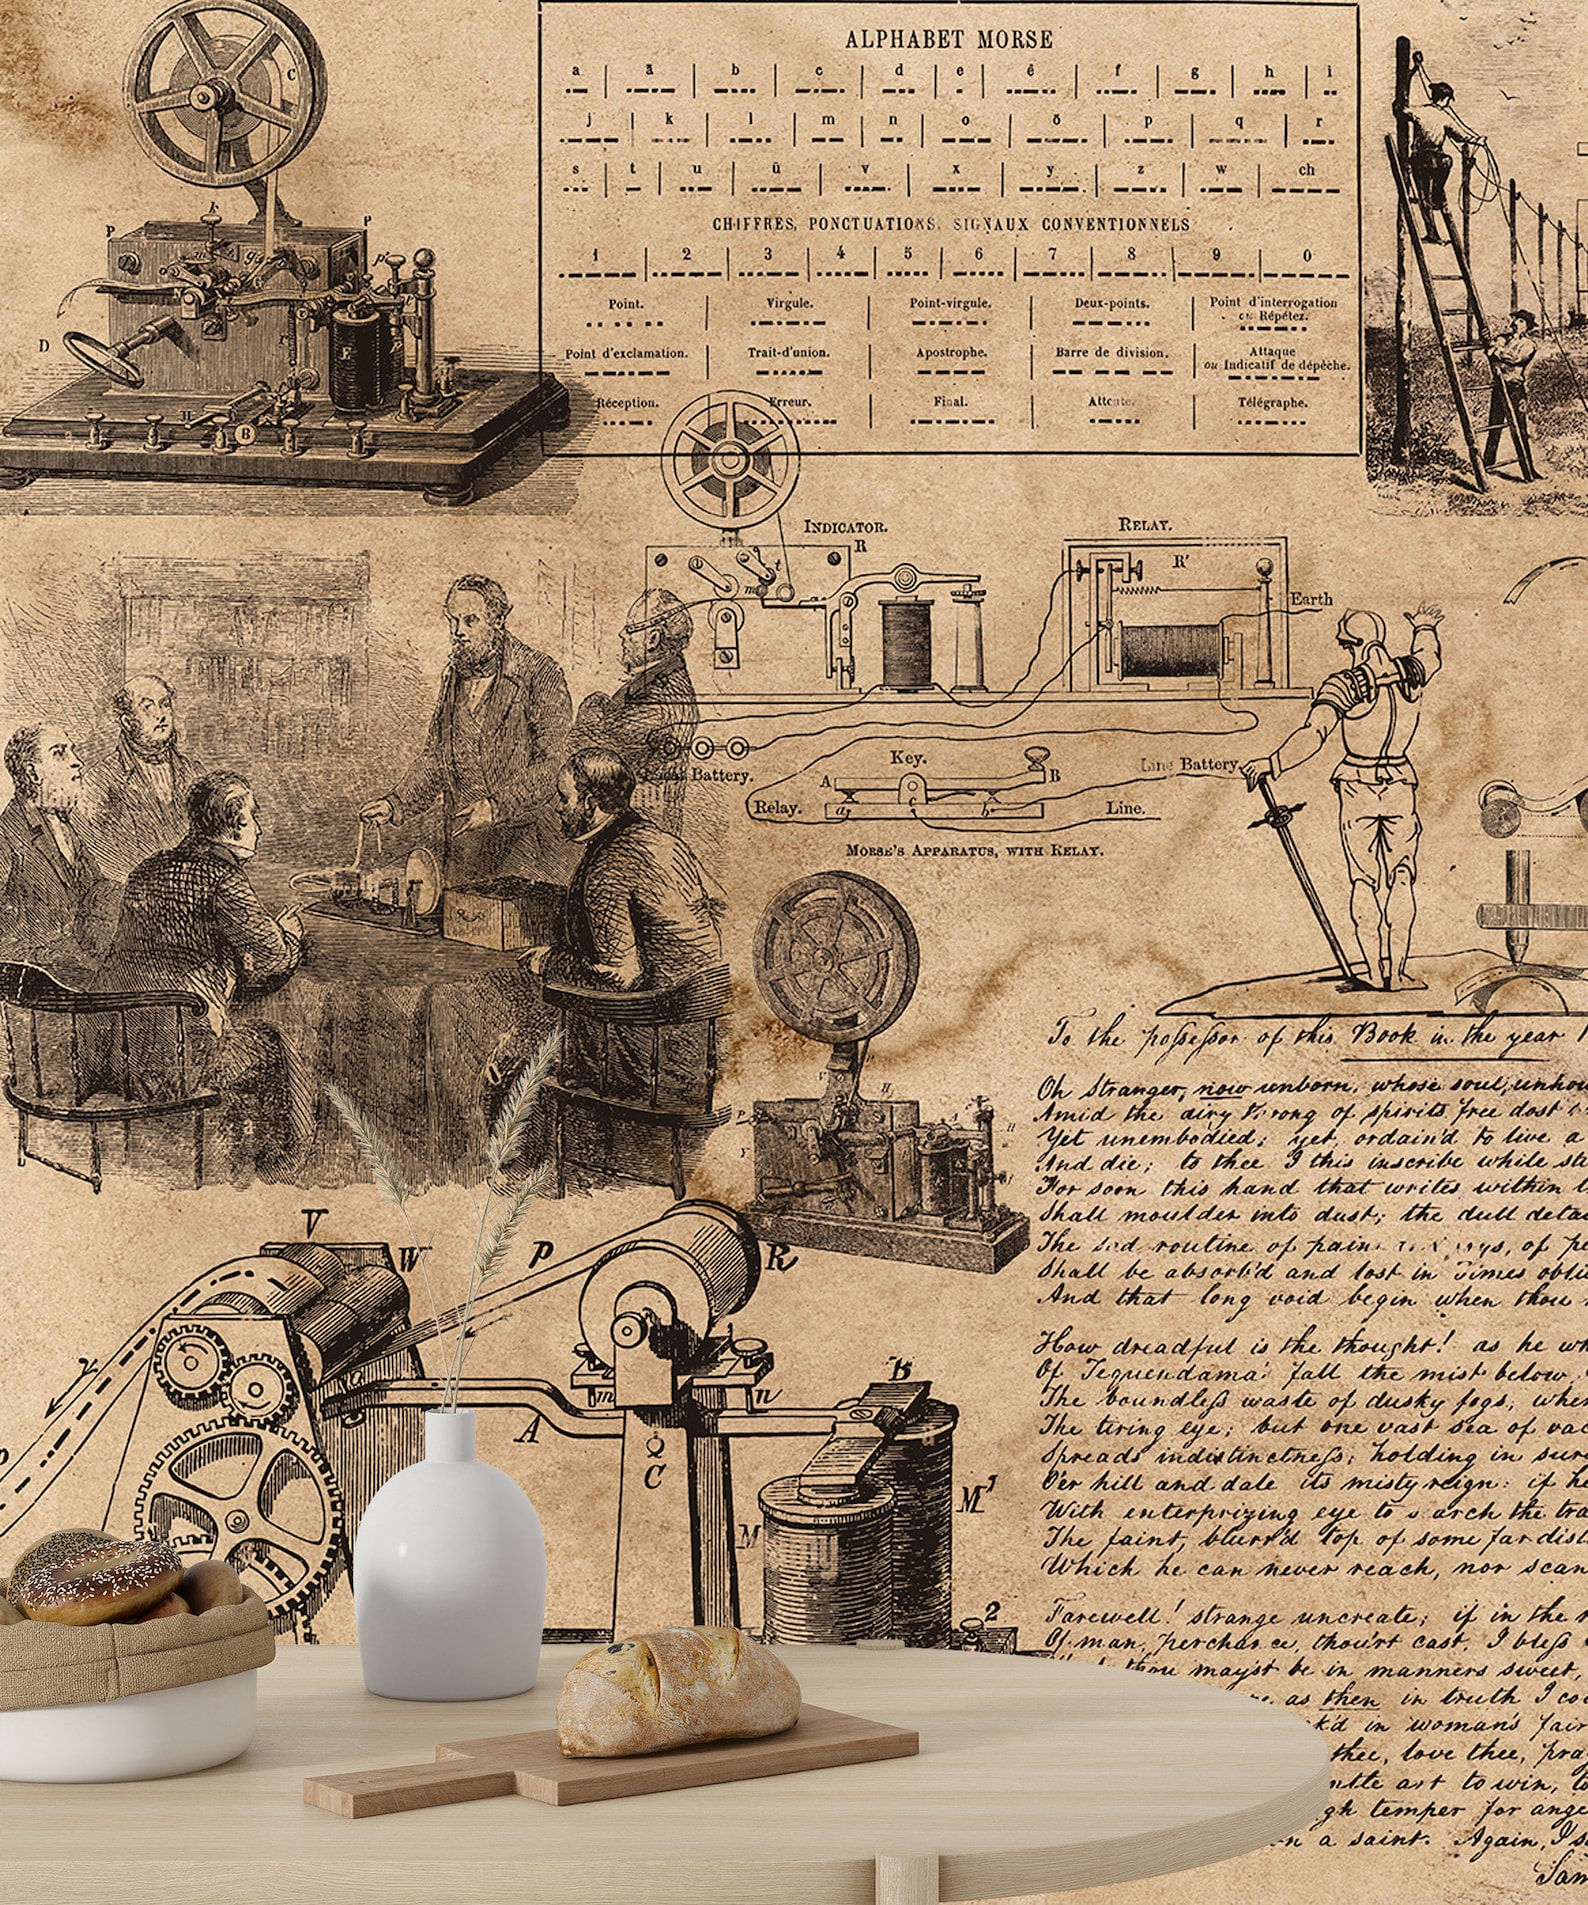 ALPHABET MORSE
a ä b c d e é f g h i
j k l m n o ö p q r
s t u ü v x y z w ch
CHIFFRES, PONCTUATIONS, SIGNAUX CONVENTIONNELS
1 2 3 4 5 6 7 8 9 0
Point. Virgule. Point-virgule. Deux-points. Point d'interrogation
ou Répétez.
Point d'exclamation. Trait-d'union. Apostrophe. Barre de division. Attaque
ou Indicatif de dépêche.
Réception. Erreur. Final. Attente. Télégraphe.
C
P k P
m g p'
D
F
H
B
INDICATOR. RELAY.
R R'
t
m
Earth
Battery. Key. Line Battery.
A B
Relay. a c b Line.
MORSE'S APPARATUS, WITH RELAY.
To the poſseſsor of this Book in the year
Oh Stranger, now unborn, whose soul,
Amid the airy throng of spirits free dost
Yet unembodied; yet, ordain'd to live a
And die; to thee I this inscribe while
For soon this hand that writes within
Shall moulder into dust; the dull
The sad routine of pain of
Shall be absorb'd and lost in Times
And that long void begin when thou
How dreadful is the thought! as he
Of Tequendama' fall the mist below
The boundleſs waste of dusky fogs,
The tiring eye; but one vast sea of
Spreads indistinctneſs; holding in
O'er hill and dale its misty reign: if he
With enterprizing eye to search the
The faint, blurr'd top of some far
Which he can never reach, nor scan
Farewell! strange uncreate; if in the
Of man, perchance, thou'rt cast, I bleſs
thou mayst be in manners sweet,
as then in truth I
in woman's fair
thee, love thee,
art to win,
temper for
a saint. Again, I
V W P R
B
m n
A
Q
C
M M'
2